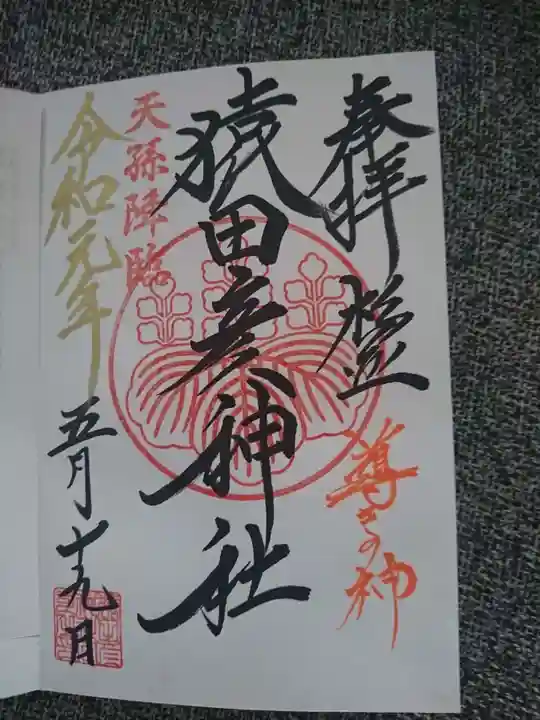 奉拝
猿田彦神社
天孫降臨
令和元年
五月十九日